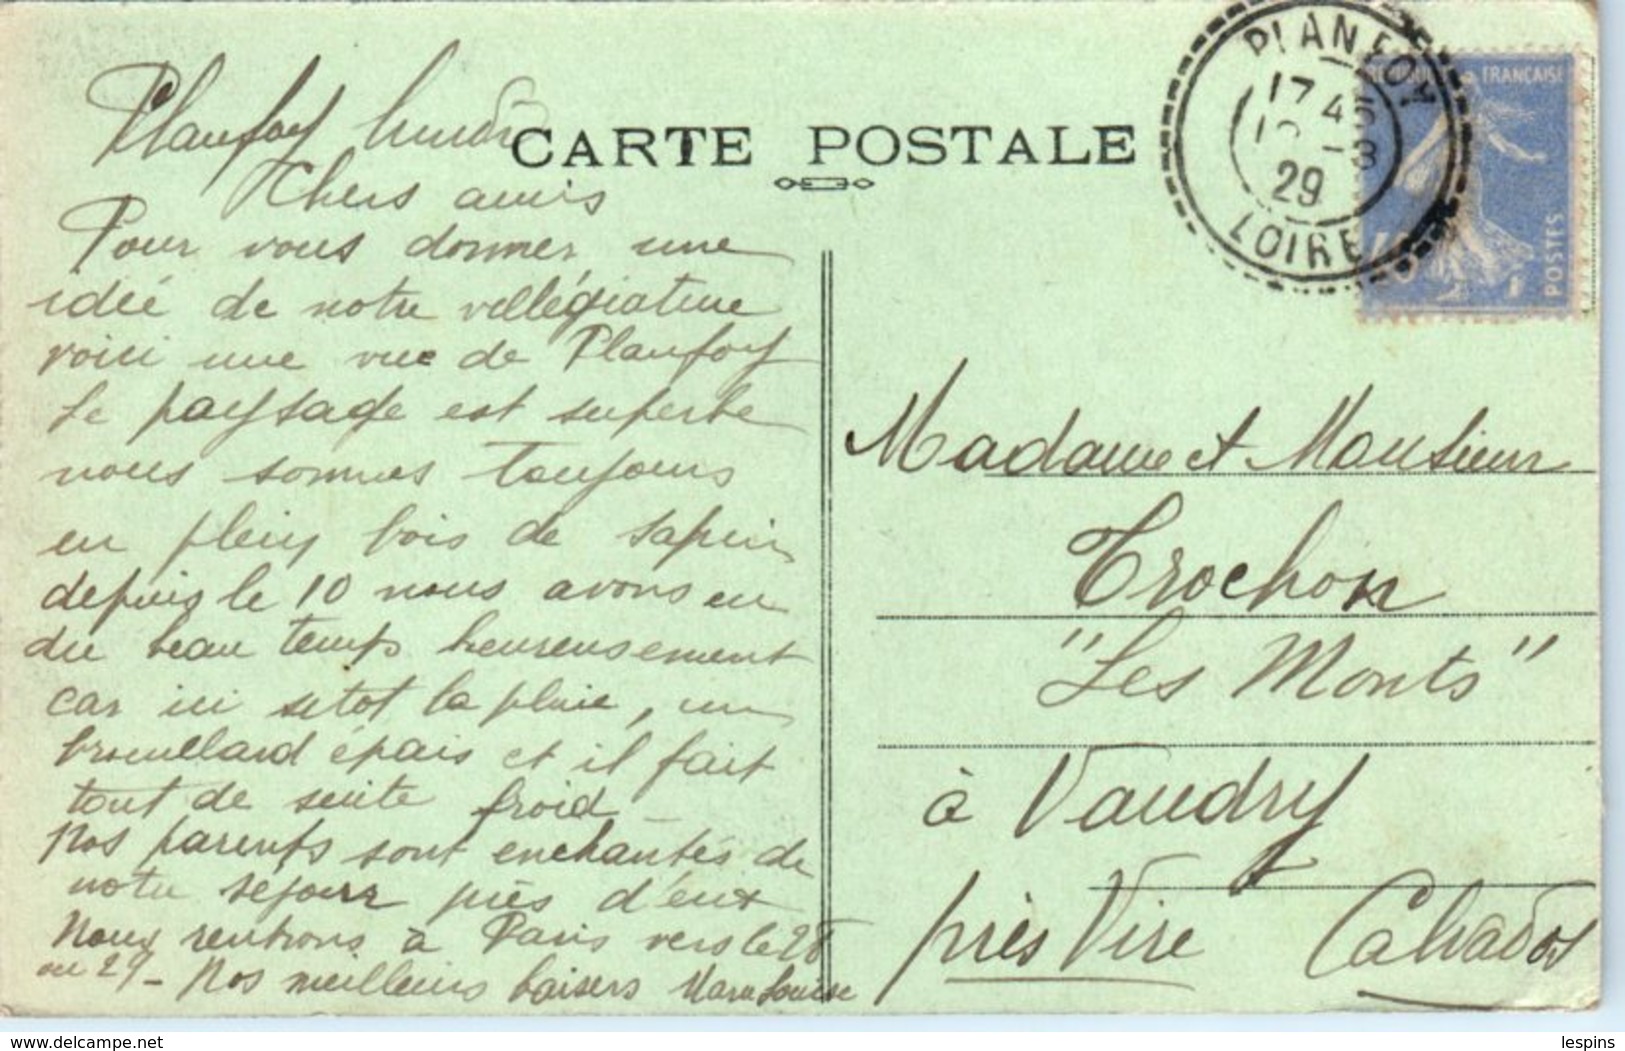 Planfoy lundi
Chers amis
Pour vous donner une
idée de notre villégiature
voici une vue de Planfoy
Le paysage est superbe
nous sommes toujours
en plein bois de sapin
depuis le 10 nous avons eu
du beau temps heureusement
car ici sitot la pluie, un
brouillard épais et il fait
tout de suite froid
Nos parents sont enchantés de
notre séjour près d'eux
Nous rentrons à Paris vers le 28
ou 29 - Nos meilleurs baisers Marie Louise
CARTE POSTALE
PLANFOY
17 45
-8
29
LOIRE
FRANÇAISE
POSTES
Madame et Monsieur
Trochon
"Les Monts"
à Vaudry
près Vire Calvados
www.delcampe.net
lespins